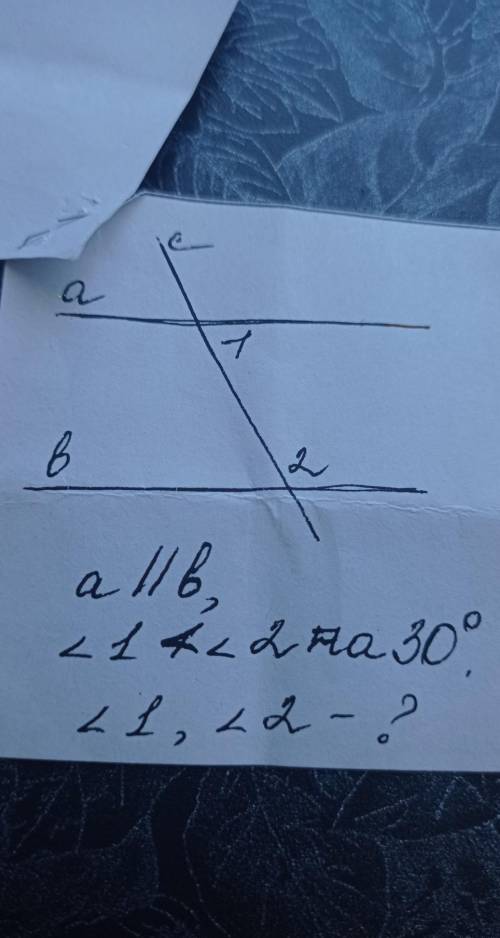 c
a
1
b
2
a || b,
∠1 < ∠2 на 30°.
∠1, ∠2 - ?